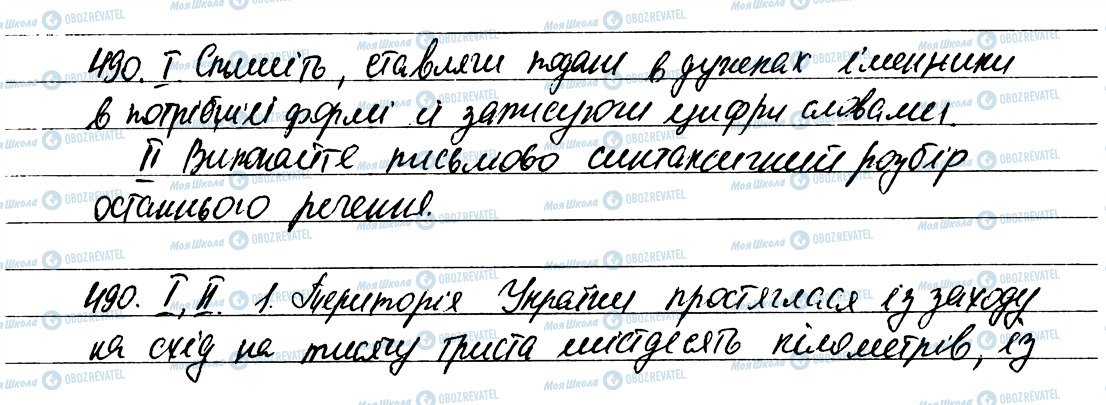 490. I Спишіть, ставлячи подані в дужках іменники
в потрібній формі й записуючи цифри словами.
II Виконайте письмово синтаксичний розбір
останнього речення.
490. I, II. 1. Територія України простяглася із заходу
на схід на тисячу триста шістдесять кілометрів, із